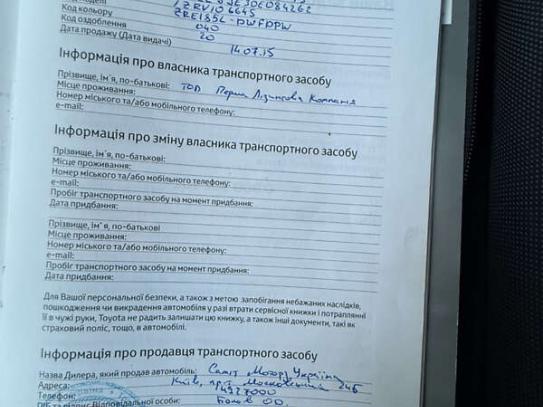 Код кольору
Код оздоблення
Дата продажу (Дата видачі)
ZRE185L-DWFDPW
040
20
14.07.15
Інформація про власника транспортного засобу
Прізвище, ім'я, по-батькові: ТОВ Перша Лізингова Компанія
Місце проживання:
Номер міського та/або мобільного телефону:
e-mail:
Інформація про зміну власника транспортного засобу
Прізвище, ім'я, по-батькові:
Місце проживання:
Номер міського та/або мобільного телефону:
e-mail:
Пробіг транспортного засобу на момент придбання:
Дата придбання:
Прізвище, ім'я, по-батькові
Місце проживання:
Номер міського та/або мобільного телефону:
e-mail:
Пробіг транспортного засобу на момент придбання:
Дата придбання:
Для Вашої персональної безпеки, а також з метою запобігання небажаних наслідків,
пошкодження чи викрадення автомобіля у разі втрати сервісної книжки і потраплянні
її в чужі руки, Toyota не радить залишати цю книжку, а також інші документи, такі як
страховий поліс, тощо, в автомобілі.
Інформація про продавця транспортного засобу
Назва Дилера, який продав автомобіль: Саміт Моторз Україна
Адреса: Київ, пр-т Московський 24б
4927000
відповідальної особи: